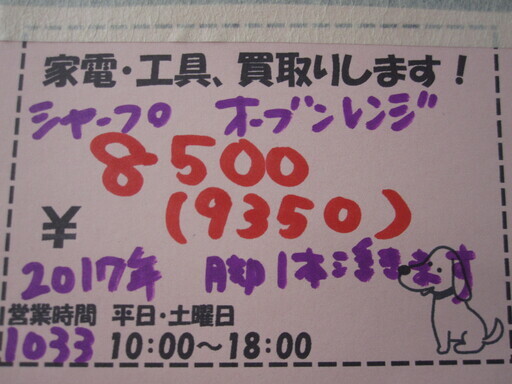 家電・工具、買取りします!
シャープ オーブンレンジ
8500
¥ (9350)
2017年 脚1本浮きます
営業時間 平日・土曜日
1033 10:00～18:00